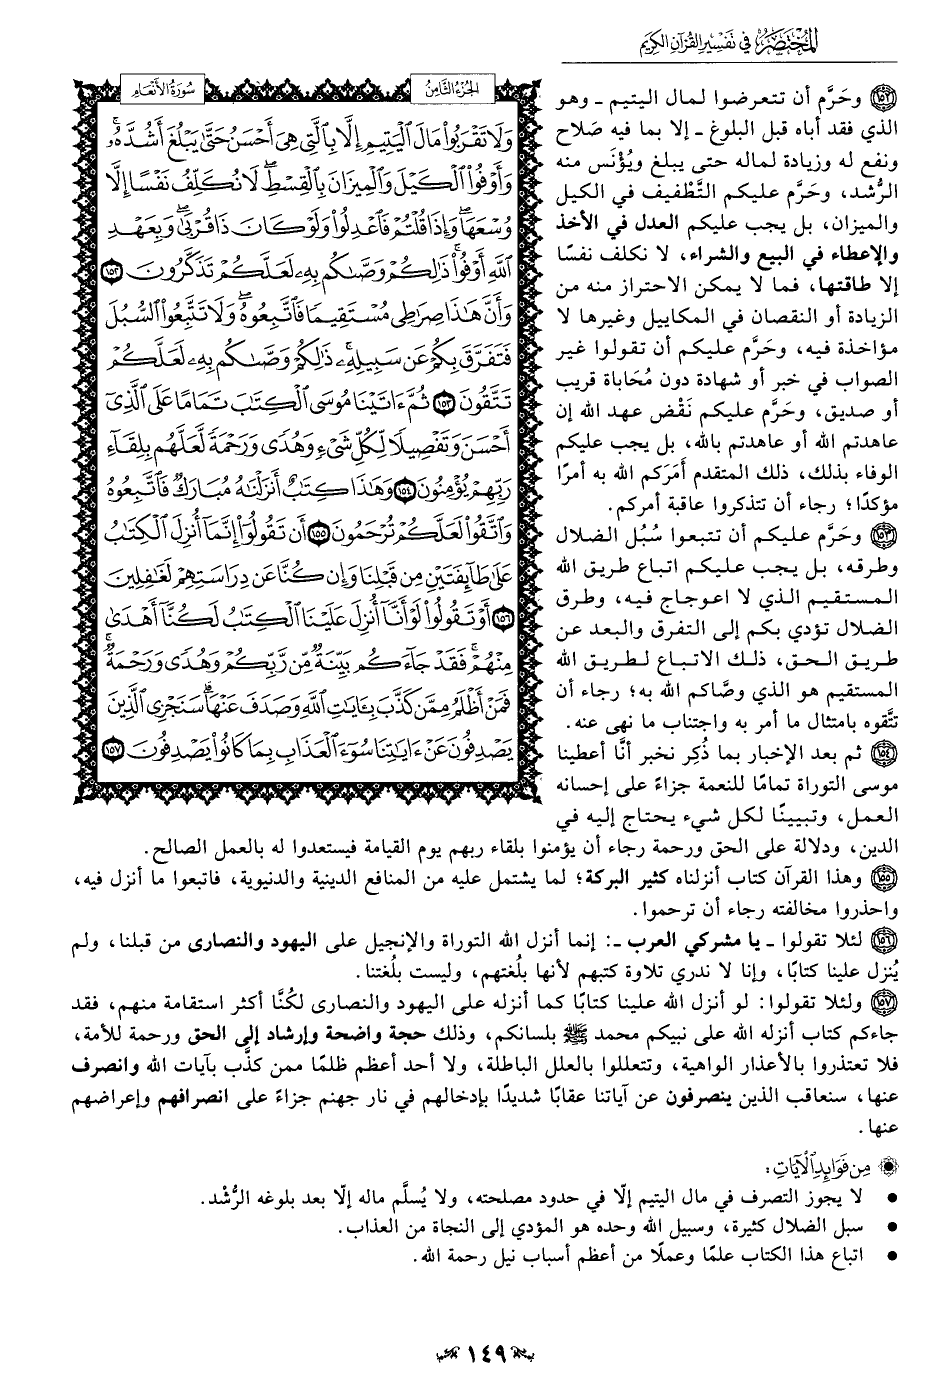 المختصر في تفسير القرآن الكريم
سورة الأنعام
الجزء الثامن
وَلَا تَقْرَبُوا۟ مَالَ ٱلْيَتِيمِ إِلَّا بِٱلَّتِى هِىَ أَحْسَنُ حَتَّىٰ يَبْلُغَ أَشُدَّهُۥۚ
وَأَوْفُوا۟ ٱلْكَيْلَ وَٱلْمِيزَانَ بِٱلْقِسْطِۖ لَا نُكَلِّفُ نَفْسًا إِلَّا
وُسْعَهَاۖ وَإِذَا قُلْتُمْ فَٱعْدِلُوا۟ وَلَوْ كَانَ ذَا قُرْبَىٰۖ وَبِعَهْدِ
ٱللَّهِ أَوْفُوا۟ۚ ذَٰلِكُمْ وَصَّىٰكُم بِهِۦ لَعَلَّكُمْ تَذَكَّرُونَ ١٥٢
وَأَنَّ هَٰذَا صِرَٰطِى مُسْتَقِيمًا فَٱتَّبِعُوهُۖ وَلَا تَتَّبِعُوا۟ ٱلسُّبُلَ
فَتَفَرَّقَ بِكُمْ عَن سَبِيلِهِۦۚ ذَٰلِكُمْ وَصَّىٰكُم بِهِۦ لَعَلَّكُمْ
تَتَّقُونَ ١٥٣ ثُمَّ ءَاتَيْنَا مُوسَى ٱلْكِتَٰبَ تَمَامًا عَلَى ٱلَّذِىٓ
أَحْسَنَ وَتَفْصِيلًا لِّكُلِّ شَىْءٍ وَهُدًى وَرَحْمَةً لَّعَلَّهُم بِلِقَآءِ
رَبِّهِمْ يُؤْمِنُونَ ١٥٤ وَهَٰذَا كِتَٰبٌ أَنزَلْنَٰهُ مُبَارَكٌ فَٱتَّبِعُوهُ
وَٱتَّقُوا۟ لَعَلَّكُمْ تُرْحَمُونَ ١٥٥ أَن تَقُولُوٓا۟ إِنَّمَآ أُنزِلَ ٱلْكِتَٰبُ
عَلَىٰ طَآئِفَتَيْنِ مِن قَبْلِنَا وَإِن كُنَّا عَن دِرَاسَتِهِمْ لَغَٰفِلِينَ
١٥٦ أَوْ تَقُولُوا۟ لَوْ أَنَّآ أُنزِلَ عَلَيْنَا ٱلْكِتَٰبُ لَكُنَّآ أَهْدَىٰ
مِنْهُمْۚ فَقَدْ جَآءَكُم بَيِّنَةٌ مِّن رَّبِّكُمْ وَهُدًى وَرَحْمَةٌۚ
فَمَنْ أَظْلَمُ مِمَّن كَذَّبَ بِـَٔايَٰتِ ٱللَّهِ وَصَدَفَ عَنْهَاۗ سَنَجْزِى ٱلَّذِينَ
يَصْدِفُونَ عَنْ ءَايَٰتِنَا سُوٓءَ ٱلْعَذَابِ بِمَا كَانُوا۟ يَصْدِفُونَ ١٥٧
١٥٢ وحَرَّم أن تتعرضوا لمال اليتيم ـ وهو
الذي فقد أباه قبل البلوغ ـ إلا بما فيه صَلاح
ونفع له وزيادة لماله حتى يبلغ ويُؤْنَس منه
الرُّشد، وحَرَّم عليكم التَّطْفيف في الكيل
والميزان، بل يجب عليكم العدل في الأخذ
والإعطاء في البيع والشراء، لا نكلف نفسًا
إلا طاقتها، فما لا يمكن الاحتراز منه من
الزيادة أو النقصان في المكاييل وغيرها لا
مؤاخذة فيه، وحَرَّم عليكم أن تقولوا غير
الصواب في خبر أو شهادة دون مُحَاباة قريب
أو صديق، وحَرَّم عليكم نَقْض عهد الله إن
عاهدتم الله أو عاهدتم بالله، بل يجب عليكم
الوفاء بذلك، ذلك المتقدم أَمَرَكم الله به أمرًا
مؤكدًا؛ رجاء أن تتذكروا عاقبة أمركم.
١٥٣ وحَرَّم عليكم أن تتبعوا سُبُل الضلال
وطرقه، بل يجب عليكم اتباع طريق الله
المستقيم الذي لا اعوجاج فيه، وطرق
الضلال تؤدي بكم إلى التفرق والبعد عن
طريق الحق، ذلك الاتباع لطريق الله
المستقيم هو الذي وصَّاكم الله به؛ رجاء أن
تتَّقوه بامتثال ما أمر به واجتناب ما نهى عنه.
١٥٤ ثم بعد الإخبار بما ذُكِر نخبر أنَّا أعطينا
موسى التوراة تمامًا للنعمة جزاءً على إحسانه
العمل، وتبيينًا لكل شيء يحتاج إليه في
الدين، ودلالة على الحق ورحمة رجاء أن يؤمنوا بلقاء ربهم يوم القيامة فيستعدوا له بالعمل الصالح.
١٥٥ وهذا القرآن كتاب أنزلناه كثير البركة؛ لما يشتمل عليه من المنافع الدينية والدنيوية، فاتبعوا ما أنزل فيه،
واحذروا مخالفته رجاء أن ترحموا.
١٥٦ لئلا تقولوا ـ يا مشركي العرب ـ: إنما أنزل الله التوراة والإنجيل على اليهود والنصارى من قبلنا، ولم
يُنزل علينا كتابًا، وإنا لا ندري تلاوة كتبهم لأنها بلُغتهم، وليست بلُغتنا.
١٥٧ ولئلا تقولوا: لو أنزل الله علينا كتابًا كما أنزله على اليهود والنصارى لكُنَّا أكثر استقامة منهم، فقد
جاءكم كتاب أنزله الله على نبيكم محمد ﷺ بلسانكم، وذلك حجة واضحة وإرشاد إلى الحق ورحمة للأمة،
فلا تعتذروا بالأعذار الواهية، وتتعللوا بالعلل الباطلة، ولا أحد أعظم ظلمًا ممن كذَّب بآيات الله وانصرف
عنها، سنعاقب الذين ينصرفون عن آياتنا عقابًا شديدًا بإدخالهم في نار جهنم جزاءً على انصرافهم وإعراضهم
عنها.
من فوائد الآيات:
• لا يجوز التصرف في مال اليتيم إلّا في حدود مصلحته، ولا يُسلَّم ماله إلّا بعد بلوغه الرُّشْد.
• سبل الضلال كثيرة، وسبيل الله وحده هو المؤدي إلى النجاة من العذاب.
• اتباع هذا الكتاب علمًا وعملًا من أعظم أسباب نيل رحمة الله.
١٤٩